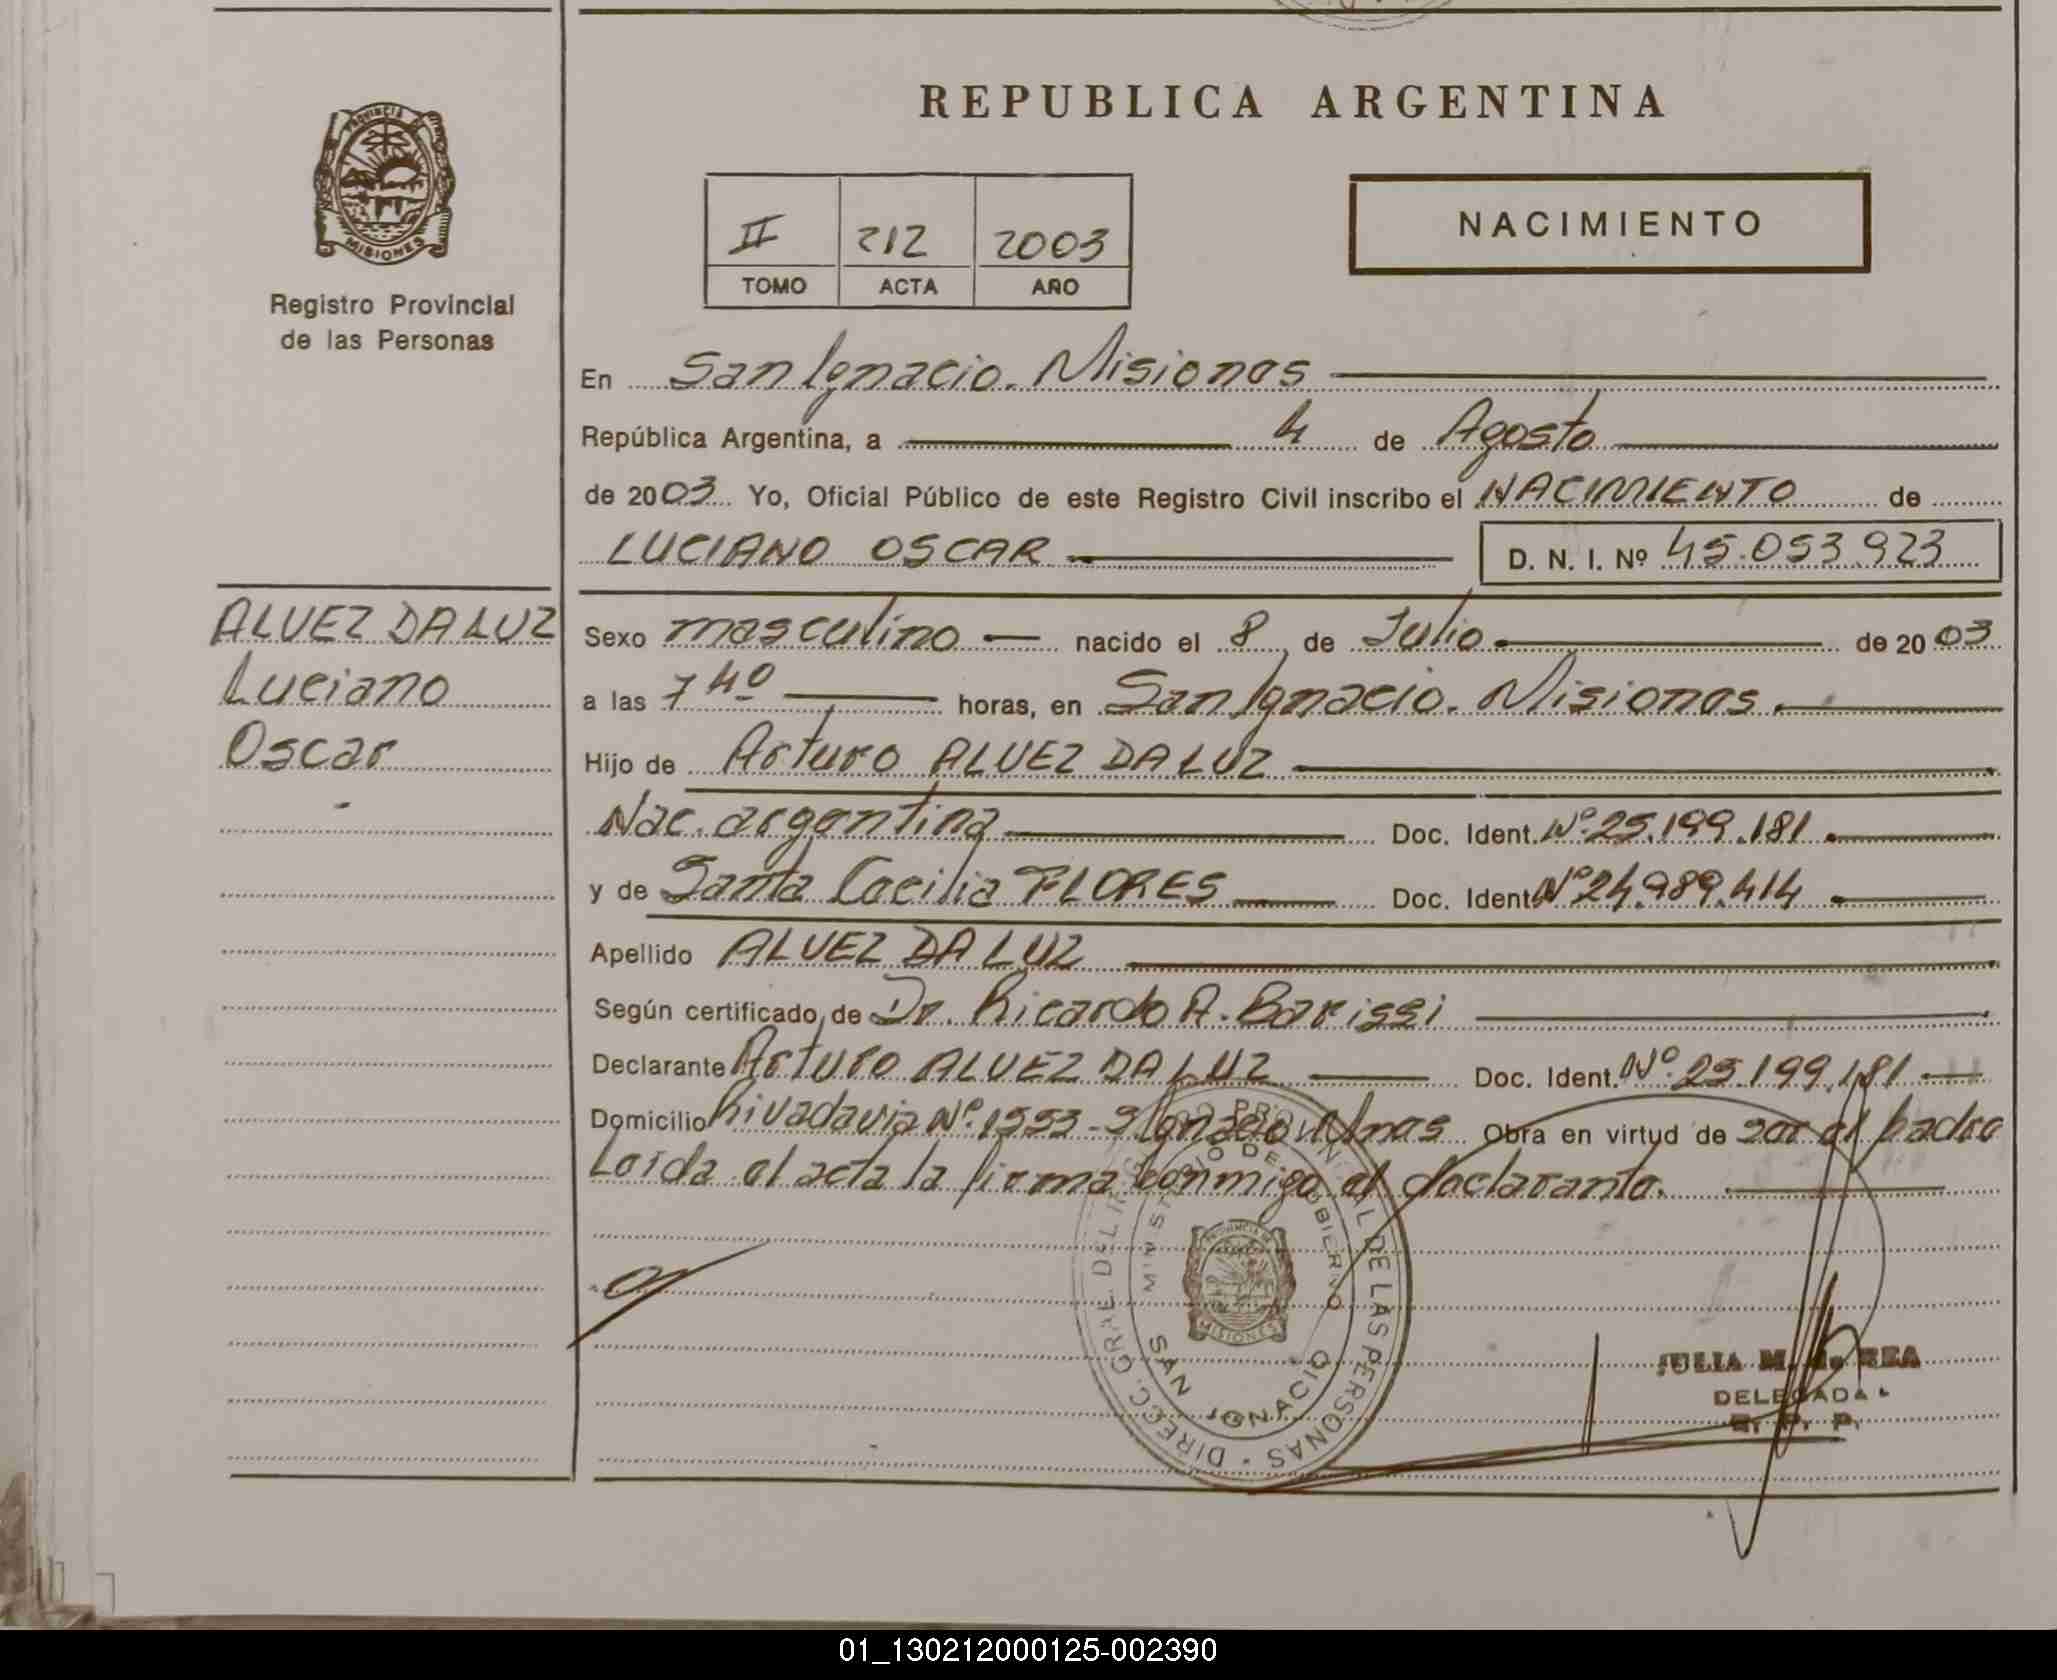 REPUBLICA ARGENTINA
PROVINCIA DE MISIONES
Registro Provincial
de las Personas
II 212 2003
TOMO ACTA AÑO
NACIMIENTO
En San Ignacio. Misiones
República Argentina, a 4 de Agosto
de 2003 Yo, Oficial Público de este Registro Civil inscribo el NACIMIENTO de
LUCIANO OSCAR D. N. I. Nº 45.053.923
ALVEZ DA LUZ
Luciano
Oscar
Sexo masculino nacido el 8 de Julio de 2003
a las 7 40 horas, en San Ignacio. Misiones.
Hijo de Arturo ALVEZ DA LUZ
Nac. argentina Doc. Ident. Nº 25.199.181.
y de Santa Cecilia FLORES Doc. Ident. Nº 24.989.414
Apellido ALVEZ DA LUZ
Según certificado de Dr. Ricardo A. Barissi
Declarante Arturo ALVEZ DA LUZ Doc. Ident. Nº 25.199.181
Domicilio Rivadavia Nº 1553 - Obra en virtud de ser el padre
Leída el acta la firma conmigo el declarante.
DIRECC. GRAL. DEL REGISTRO PROVINCIAL DE LAS PERSONAS
MINISTERIO DE GOBIERNO
SAN IGNACIO
PROVINCIA DE MISIONES
JULIA M. de REA
DELEGADA
R. P. P.
01_130212000125-002390